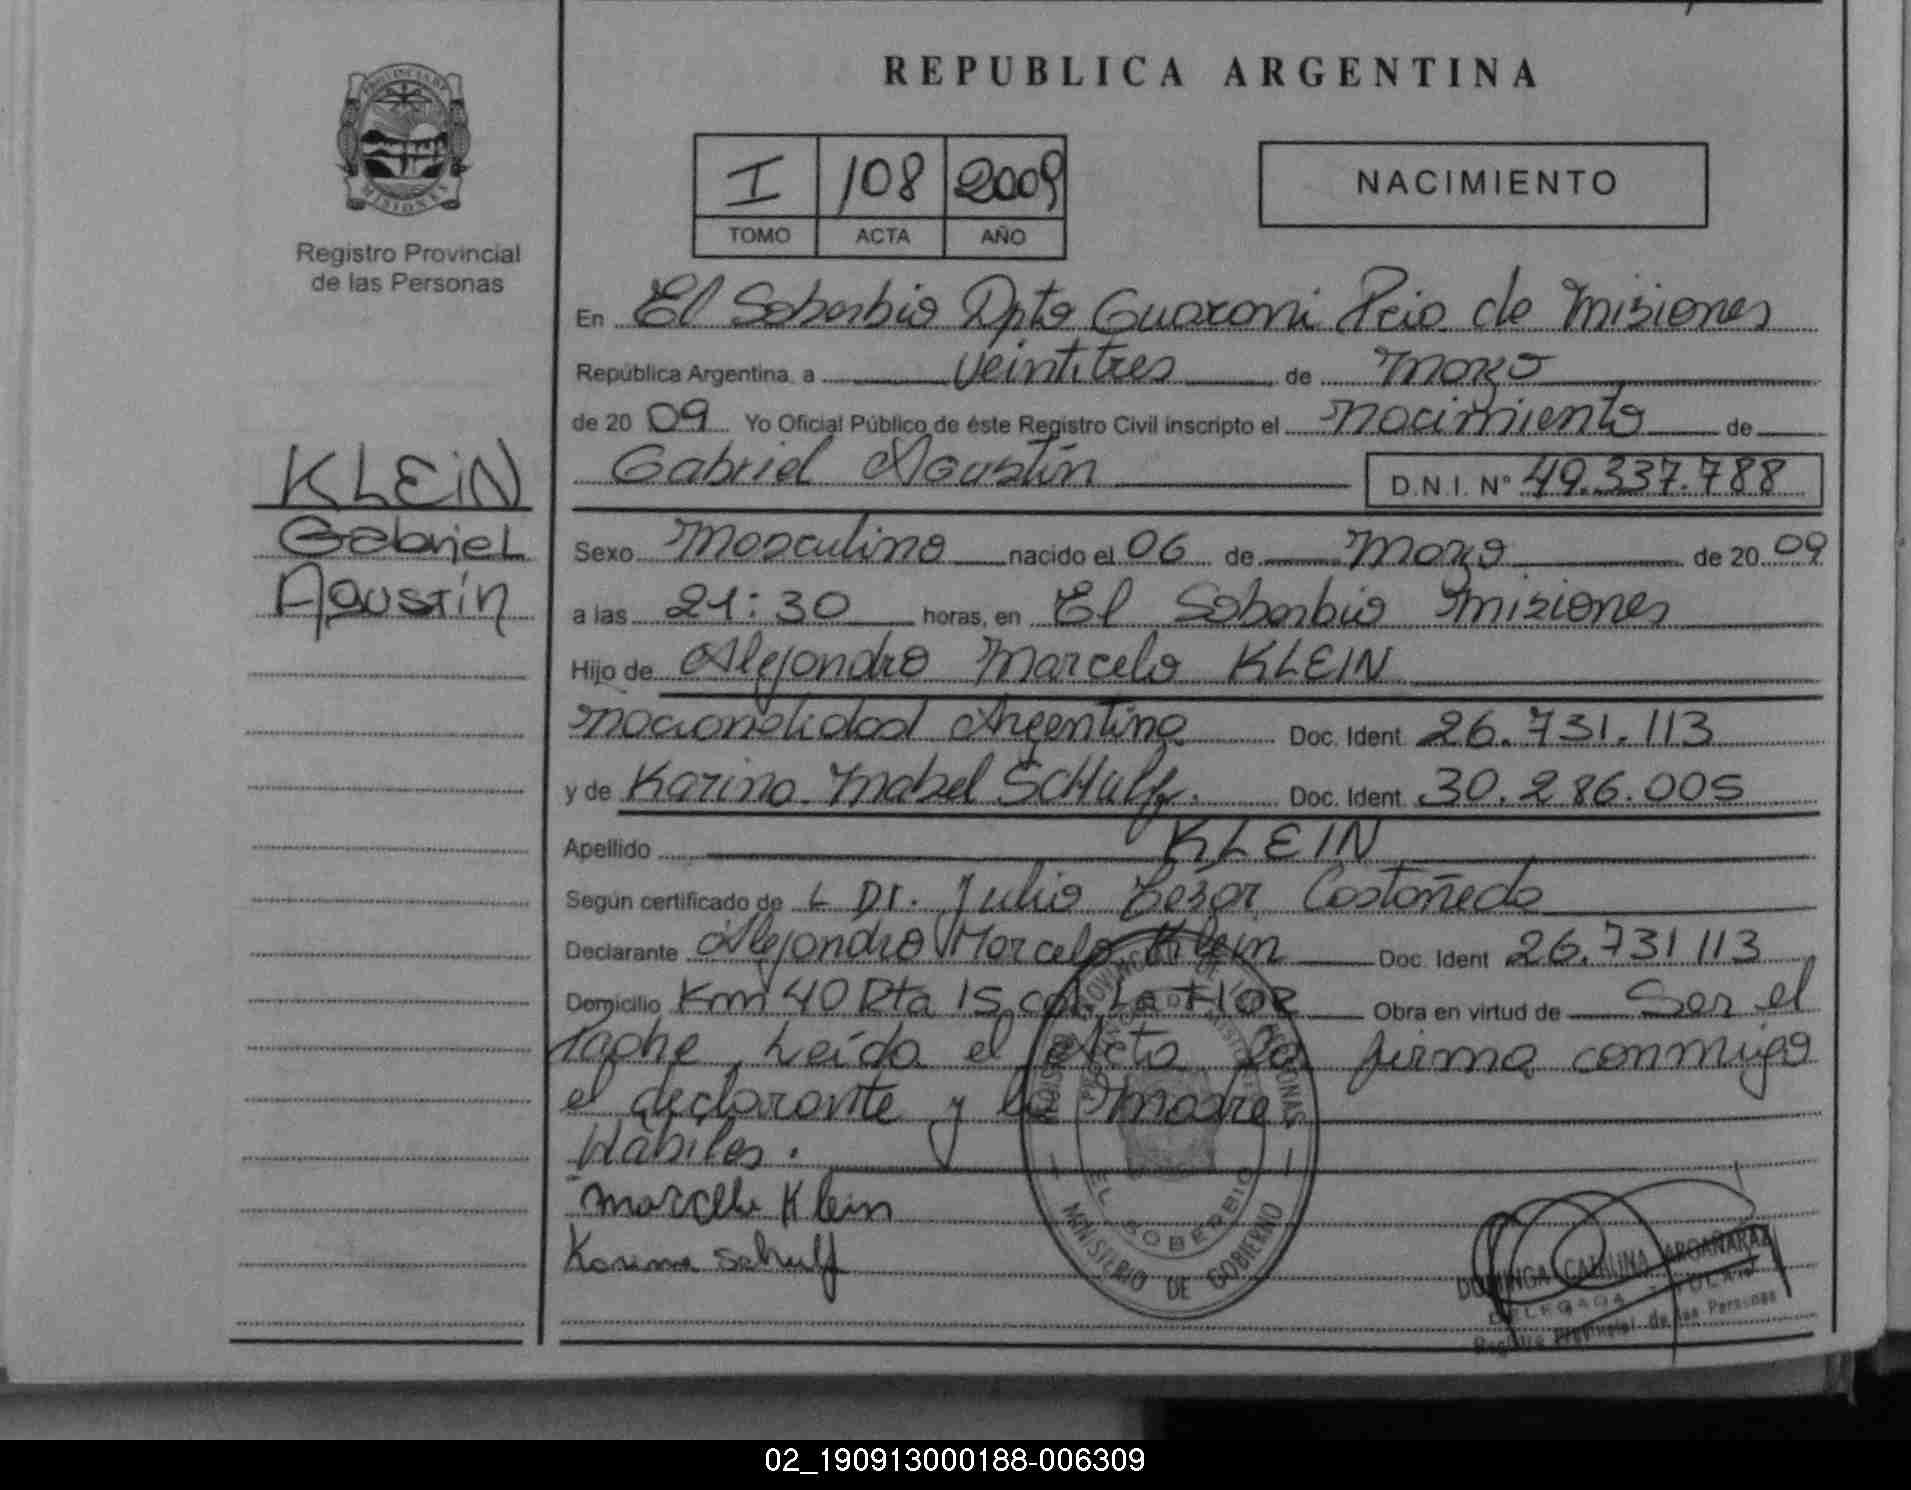 REPUBLICA ARGENTINA
I 108 2009
TOMO ACTA AÑO
NACIMIENTO
Registro Provincial
de las Personas
KLEIN
Gabriel
Agustín
En El Soberbio Dpto Guarani Pcia de Misiones
República Argentina, a veintitres de Marzo
de 20 09 Yo Oficial Público de éste Registro Civil inscripto el nacimiento de
Gabriel Agustín D.N.I. N° 49.337.788
Sexo Masculino nacido el 06 de Marzo de 20 09
a las 21:30 horas, en El Soberbio Misiones
Hijo de Alejandro Marcelo KLEIN
Nacionalidad Argentina Doc. Ident. 26.731.113
y de Karina Mabel SCHulf. Doc. Ident. 30.286.005
Apellido KLEIN
Según certificado de L Dr. Julio Cezar Castañeda
Declarante Alejandro Marcelo Klein Doc. Ident 26.731 113
Domicilio Km 40 Rta 15 col. La Flor Obra en virtud de Ser el
Padre, Leída el Acta La firma conmigo
el declarante y la Madre
Hábiles.
Marcelo Klein
Karina Schulf
MINISTERIO DE GOBIERNO
EL SOBERBIO
DOMINGA CATALINA ARGAÑARAZ
DELEGADA TITULAR
Registro Provincial de las Personas
02_190913000188-006309